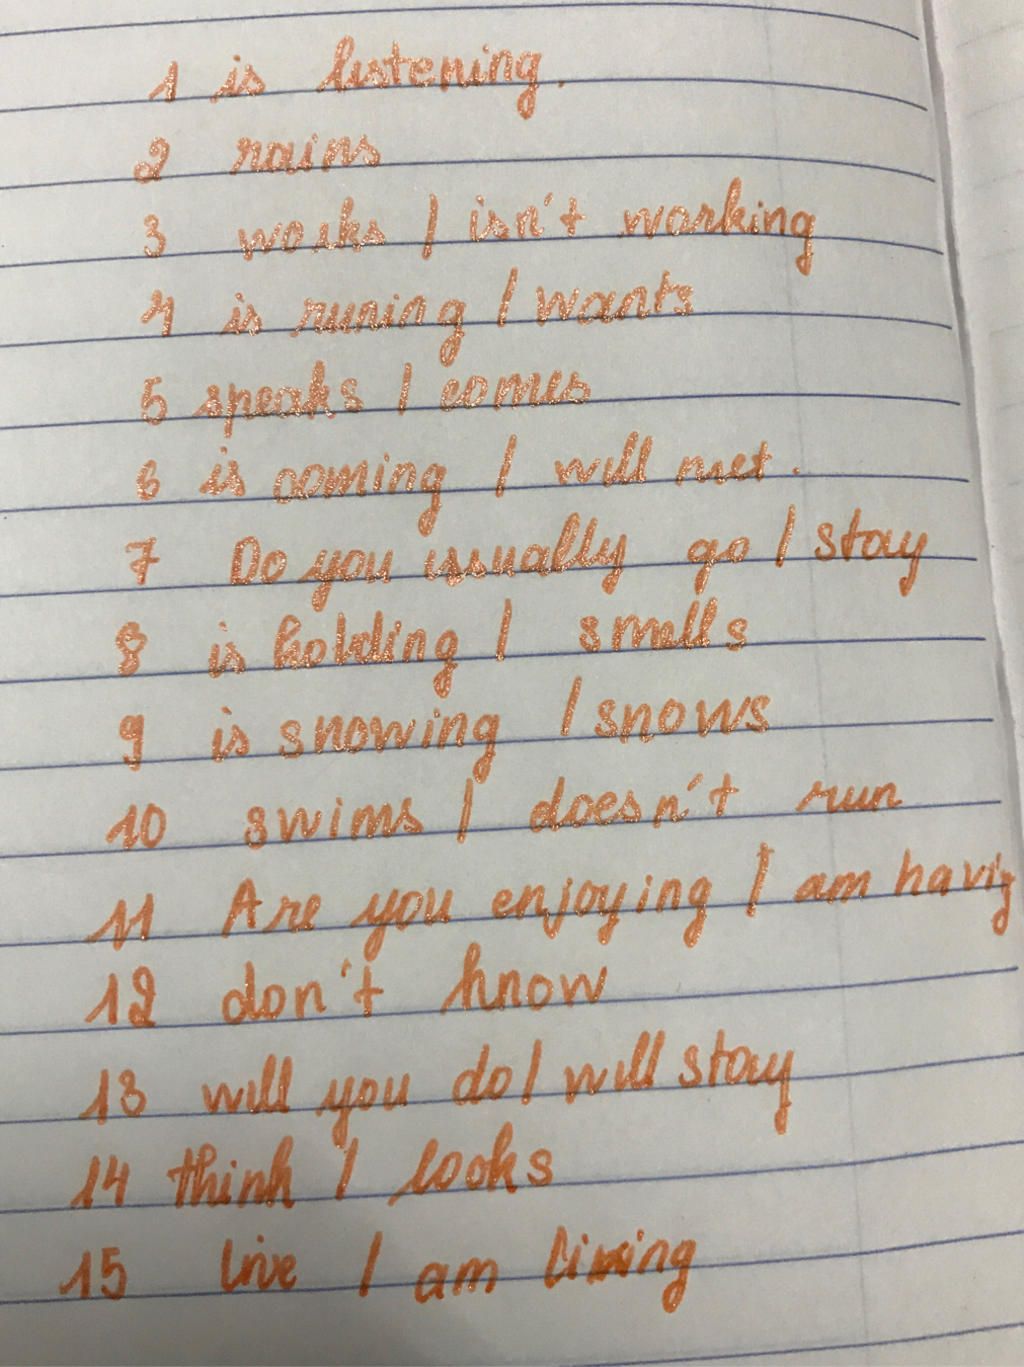 1 is listening.
2 rains
3 works / isn't working
4 is runing / wants
5 speaks / comes
6 is coming / will met.
7 Do you usually go / stay
8 is holding / smells
9 is snowing / snows
10 swims / doesn't run
11 Are you enjoying / am havig
12 don't know
13 will you do / will stay
14 think / looks
15 live / am living